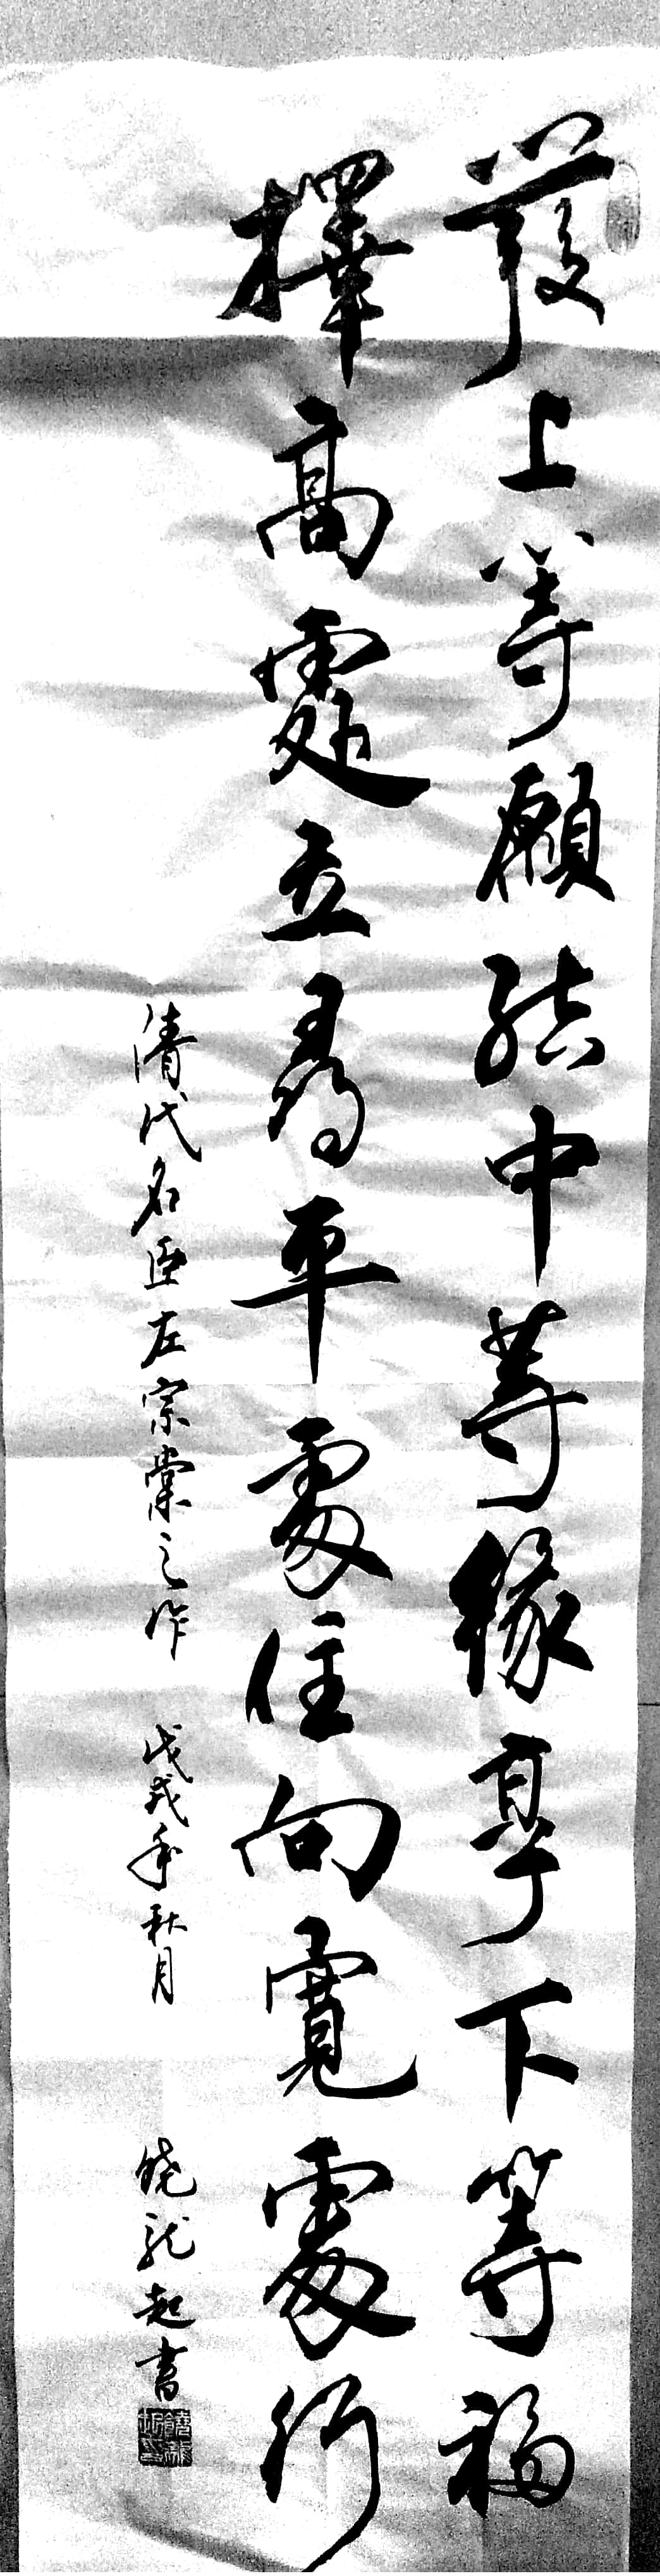 發上等願結中等緣享下等福
擇高處立尋平處住向寬處行
清代名臣左宗棠之作 戊戌年秋月 饒龍起書